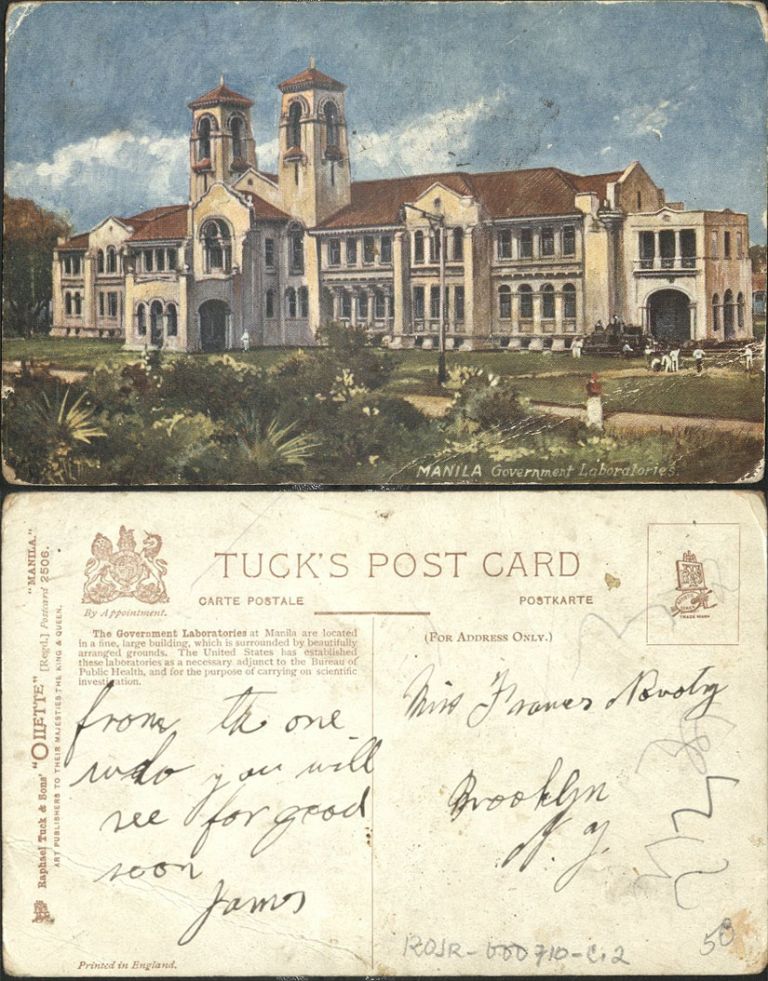 MANILA Government Laboratories.
TUCK'S POST CARD
By Appointment.
CARTE POSTALE
POSTKARTE
The Government Laboratories at Manila are located
in a fine, large building, which is surrounded by beautifully
arranged grounds. The United States has established
these laboratories as a necessary adjunct to the Bureau of
Public Health, and for the purpose of carrying on scientific
investigation.
(FOR ADDRESS ONLY.)
TRADE MARK
Raphael Tuck & Sons' "OILETTE" [Regd.] Postcard 2506. "MANILA."
ART PUBLISHERS TO THEIR MAJESTIES THE KING & QUEEN.
from the one
who you will
see for good
soon
James
Miss Frances Novoty
Brooklyn
N.Y.
Printed in England.
ROJR-000710-C.2
50